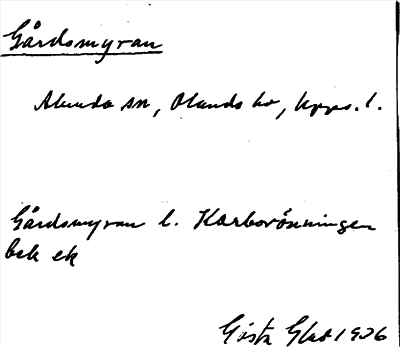 Gårdsmyran
Alunda sn, Olands hd, Upps. l.
Gårdsmyran l. Karborönningen
bek ek
Gösta 1926